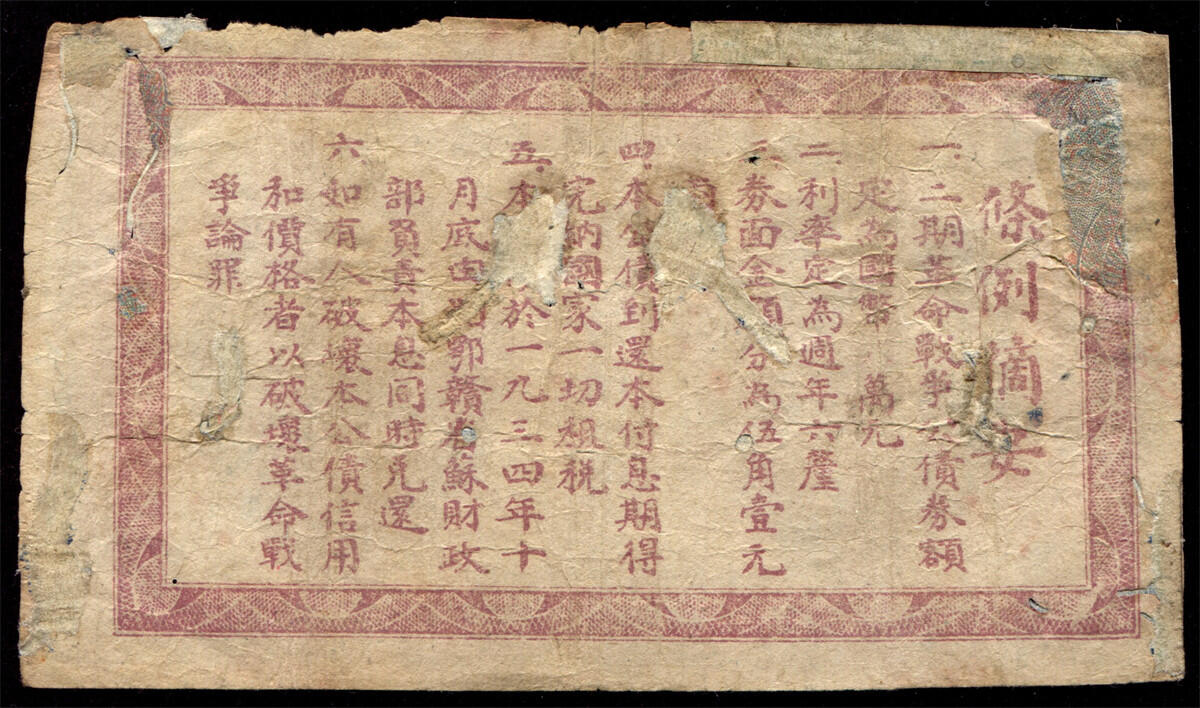 條例摘要
一、二期革命戰爭公債券額
定為國幣 萬元
二、利率定為週年六釐
三、券面金額分為伍角壹元
四、本公債到還本付息期得
完納國家一切租稅
五、本 於一九三四年十
月底由 鄂贛 蘇財政
部負責本息同時兌還
六、如有人破壞本公債信用
和價格者以破壞革命戰
爭論罪